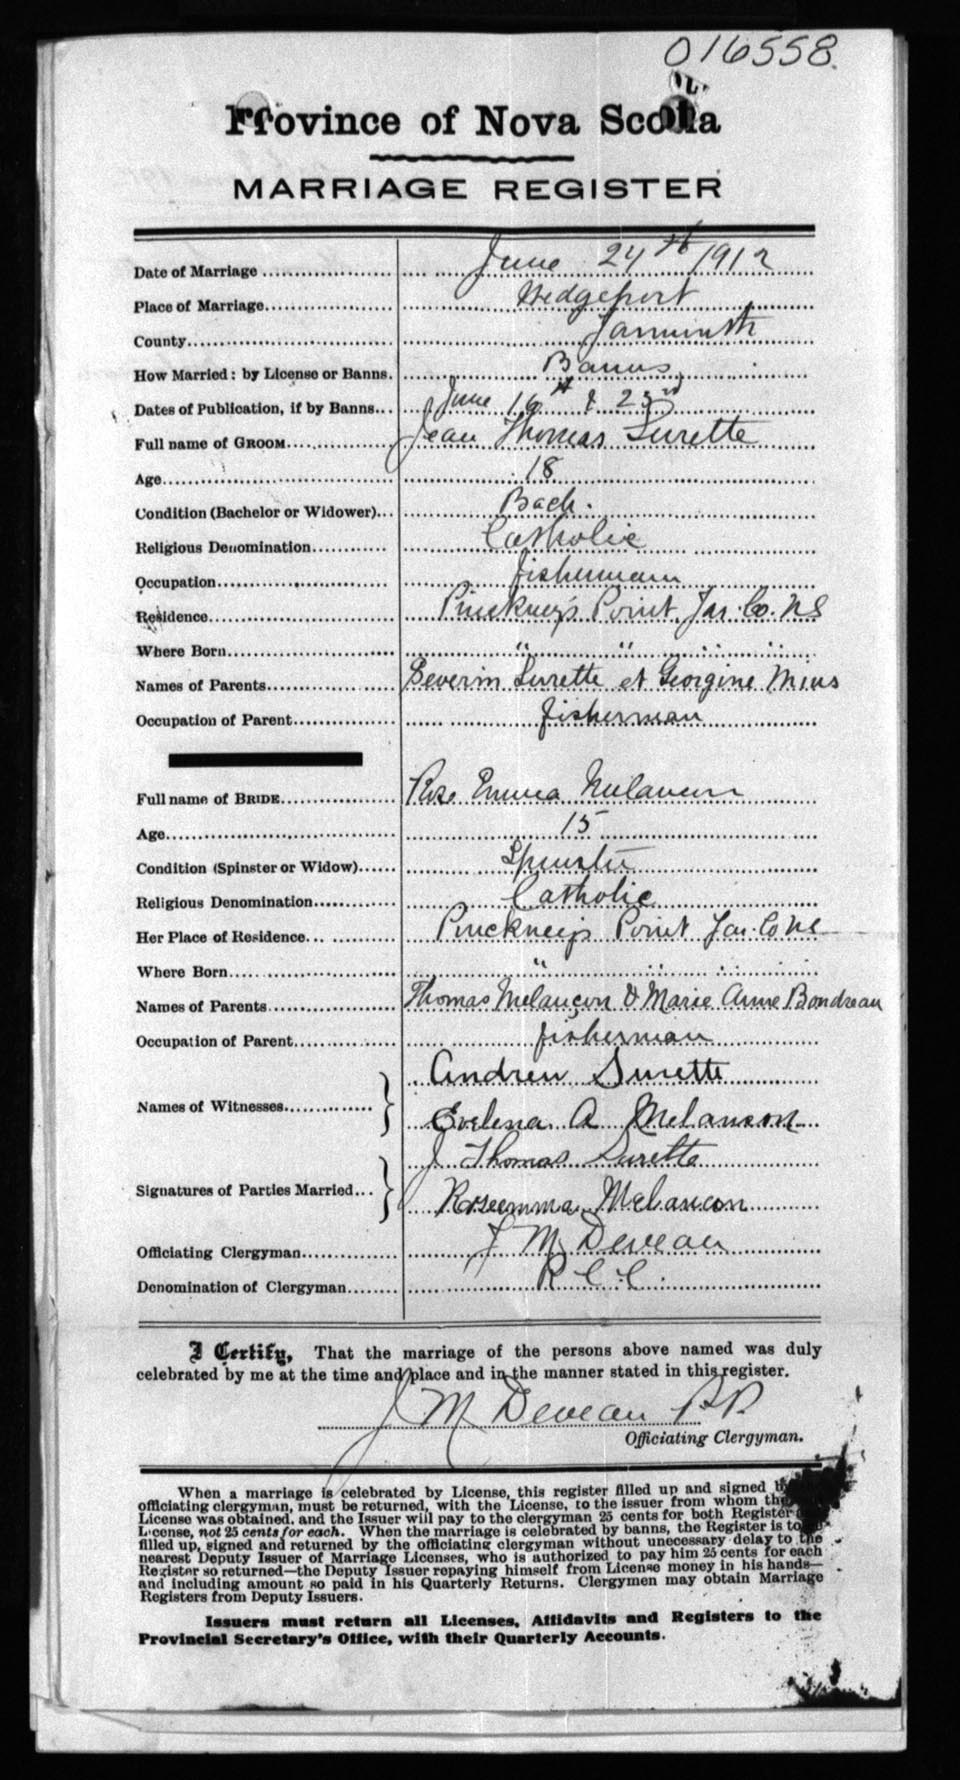 016558.
Province of Nova Scotia
MARRIAGE REGISTER
Date of Marriage June 24th 1912
Place of Marriage Wedgeport
County Yarmouth
How Married: by License or Banns. Banns
Dates of Publication, if by Banns June 16th & 23rd
Full name of GROOM Jean Thomas Surette
Age 18
Condition (Bachelor or Widower) Bach.
Religious Denomination Catholic
Occupation fisherman
Residence Pinckney's Point, Yar. Co. NS
Where Born " " " "
Names of Parents Severin Surette et Georgine Mius
Occupation of Parent fisherman
Full name of BRIDE Rose Emma Melancon
Age 15
Condition (Spinster or Widow) Spinster
Religious Denomination Catholic
Her Place of Residence Pinckney's Point Yar. Co NS
Where Born " " "
Names of Parents Thomas Melançon & Marie Anne Boudreau
Occupation of Parent fisherman
Names of Witnesses Andrew Surette
Evelena A Melanson
Signatures of Parties Married J Thomas Surette
Roseemma Melancon
Officiating Clergyman J M Deveau
Denomination of Clergyman R C C.
I Certify, That the marriage of the persons above named was duly
celebrated by me at the time and place and in the manner stated in this register.
J M Deveau P.P.
Officiating Clergyman.
When a marriage is celebrated by License, this register filled up and signed
officiating clergyman, must be returned, with the License, to the issuer from whom the
License was obtained, and the Issuer will pay to the clergyman 25 cents for both Register
License, not 25 cents for each. When the marriage is celebrated by banns, the Register is to
filled up, signed and returned by the officiating clergyman without unecessary delay to the
nearest Deputy Issuer of Marriage Licenses, who is authorized to pay him 25 cents for each
Register so returned—the Deputy Issuer repaying himself from License money in his hands—
and including amount so paid in his Quarterly Returns. Clergymen may obtain Marriage
Registers from Deputy Issuers.
Issuers must return all Licenses, Affidavits and Registers to the
Provincial Secretary's Office, with their Quarterly Accounts.